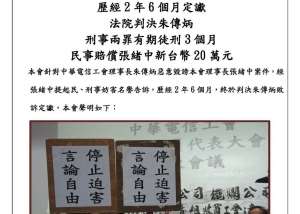 歷經2年6個月定讞
法院判決朱傳炳
刑事兩罪有期徒刑3個月
民事賠償張緒中新台幣20萬元
本會針對中華電信工會理事長朱傳炳惡意毀謗本會理事長張緒中案件，經
張緒中提起民、刑事妨害名譽告訴，歷經2年6個月，終於判決朱傳炳敗
訴定讞。本會聲明如下：
中華電信工會
會員代表大會
會議
停止迫害
言論自由
停止迫害
言論自由